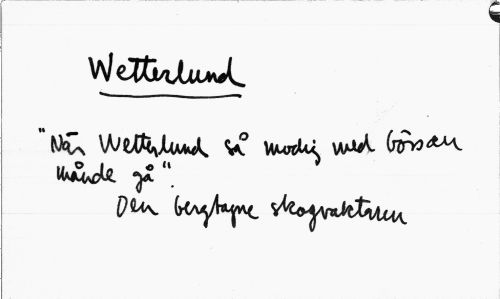 Wetterlund
"När Wetterlund så modig med bössan
månde gå".
Den bergtagne skogvaktaren